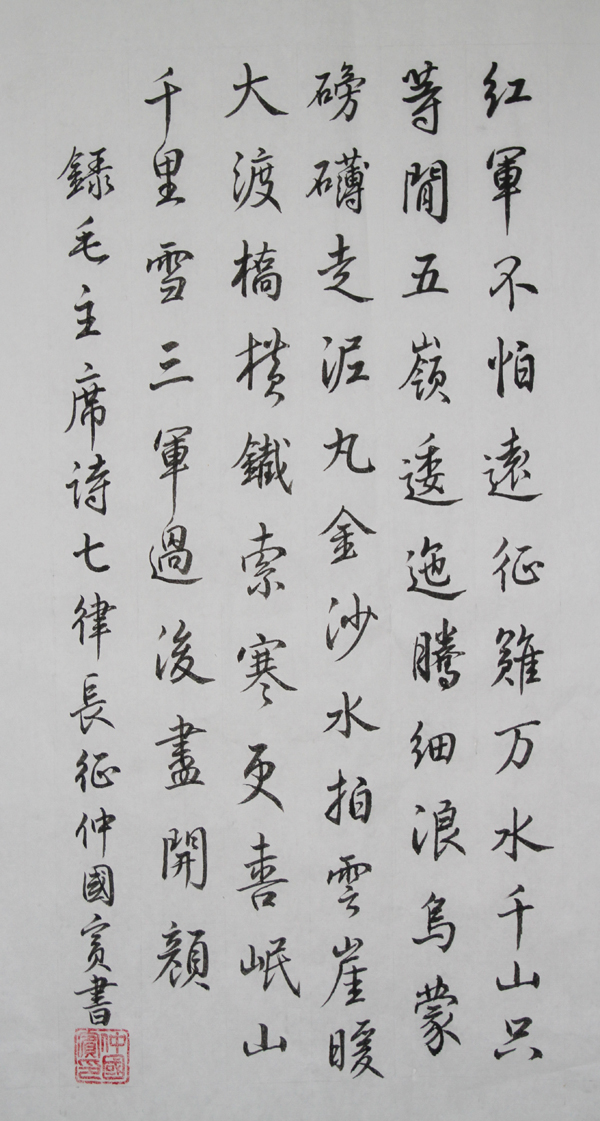 紅軍不怕遠征難万水千山只
等閒五嶺逶迤騰細浪烏蒙
磅礴走泥丸金沙水拍雲崖暖
大渡橋横鐵索寒更喜岷山
千里雪三軍過後盡開顔
録毛主席詩七律長征仲國賓書
仲國賓印